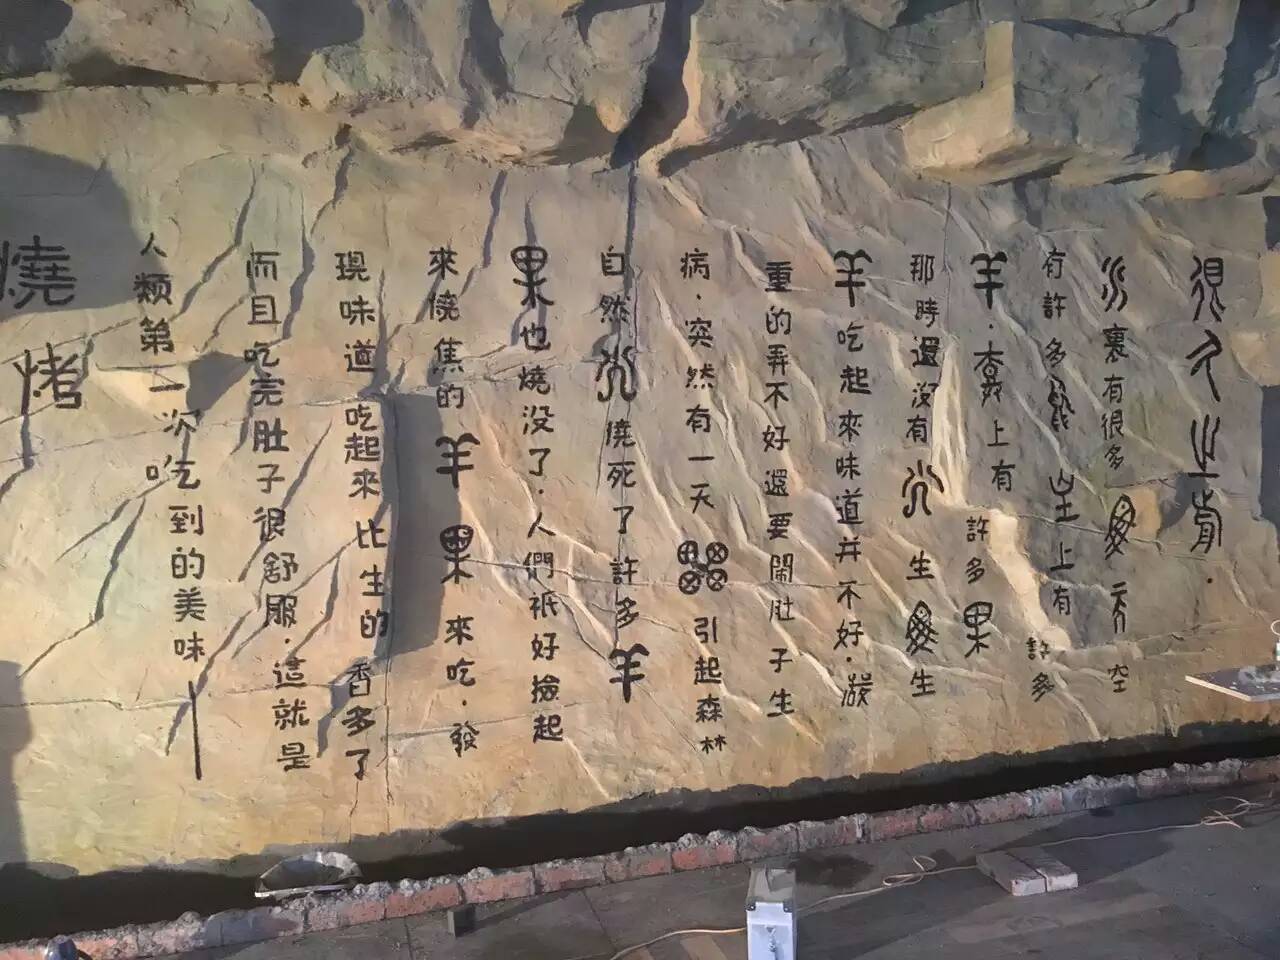 很久之前.
水裏有很多魚天空
有許多鳥上有許多
羊.樹上有許多果
那時還没有火生魚生
羊吃起來味道并不好.嚴
重的弄不好還要鬧肚子生
病.突然有一天雷引起森林
自然火燒死了許多羊
果也燒没了.人們祇好撿起
來燒焦的羊果來吃.發
現味道吃起來比生的香多了
而且吃完肚子很舒服.這就是
人類第一次吃到的美味—
燒烤